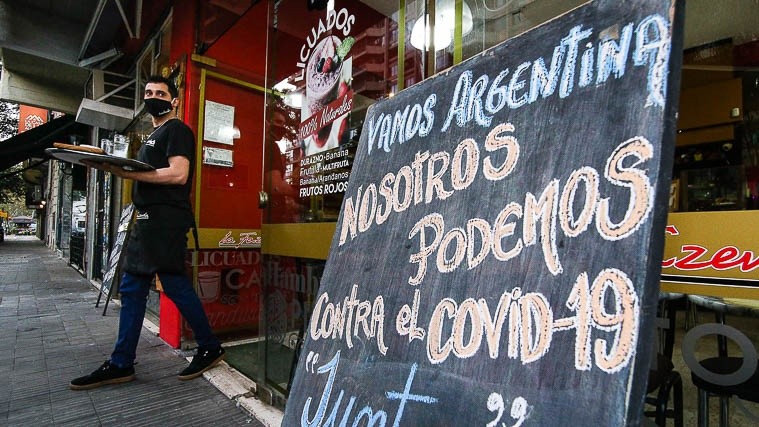 LICUADOS
100% Naturales
DURAZNO-Banana
Frutilla MULTIFRUTA
Banana/Arandanos
FRUTOS ROJOS
VAMOS ARGENTINA
NOSOTROS
PODEMOS
CONTRA EL COVID-19
LICUADO